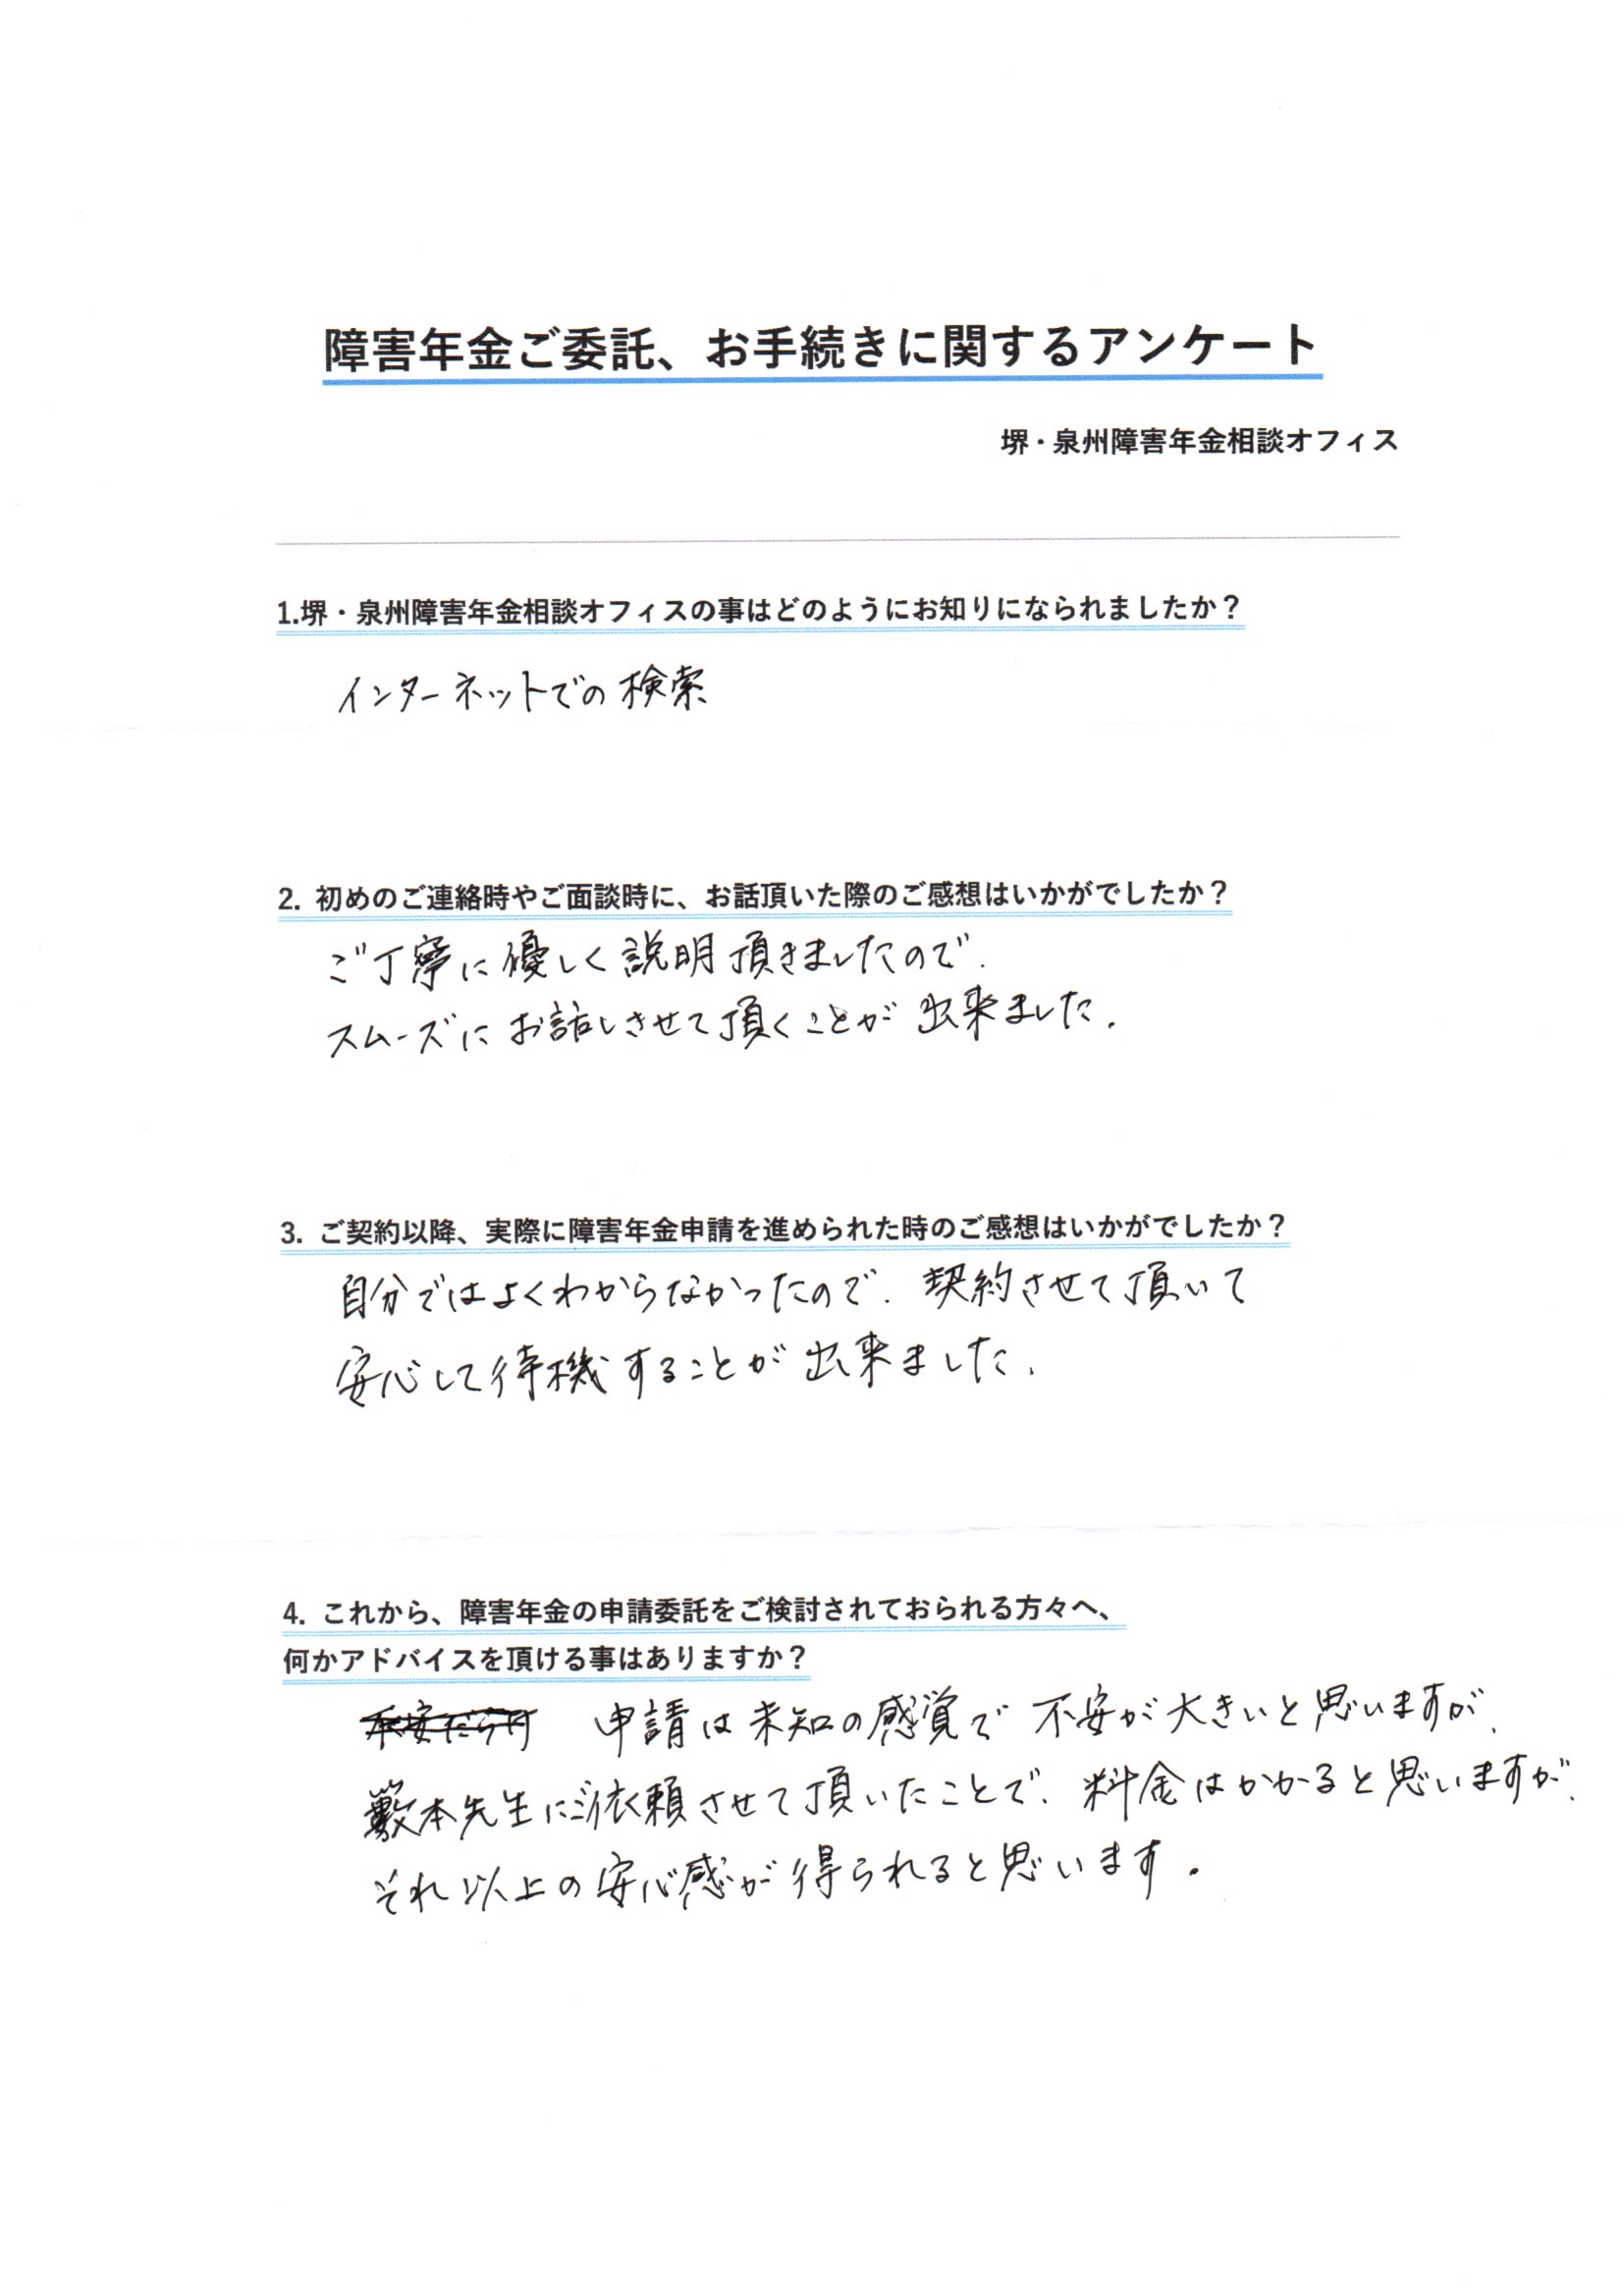 障害年金ご委託、お手続きに関するアンケート
堺・泉州障害年金相談オフィス
1.堺・泉州障害年金相談オフィスの事はどのようにお知りになられましたか？
インターネットでの検索
2. 初めのご連絡時やご面談時に、お話頂いた際のご感想はいかがでしたか？
ご丁寧に優しく説明頂きましたので、
スムーズにお話しさせて頂くことが出来ました。
3. ご契約以降、実際に障害年金申請を進められた時のご感想はいかがでしたか？
自分ではよくわからなかったので、契約させて頂いて
安心して待機することが出来ました。
4. これから、障害年金の申請委託をご検討されておられる方々へ、
何かアドバイスを頂ける事はありますか？
不安だらけ 申請は未知の感覚で不安が大きいと思いますが、
藪本先生にご依頼させて頂いたことで、料金はかかると思いますが、
それ以上の安心感が得られると思います。